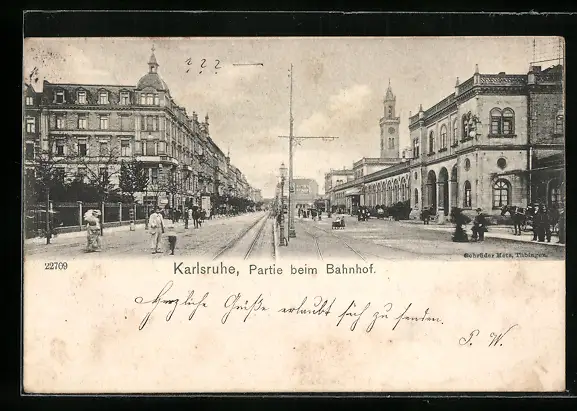 ? ? ?
Gebrüder Metz, Tübingen.
22709
Karlsruhe, Partie beim Bahnhof.
Herzliche Grüße erlaubt sich zu senden.
P. W.